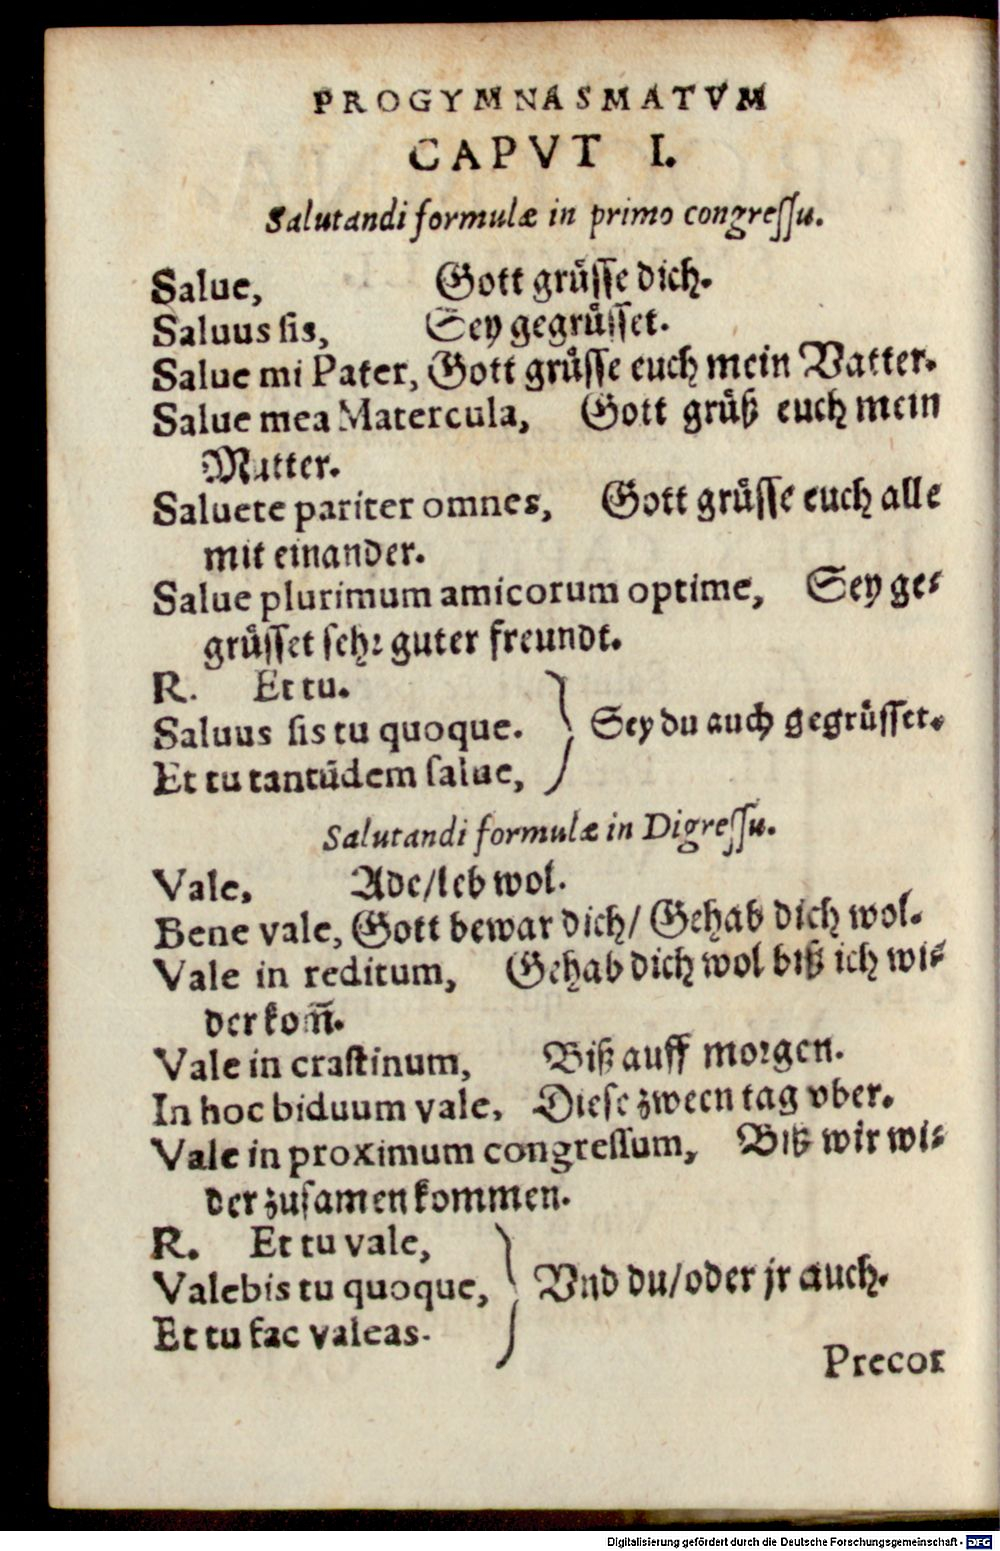 PROGYMNASMATVM
CAPVT I.
Salutandi formulæ in primo congreſſu.
Salue, Gott grüſſe dich.
Saluus ſis, Sey gegrüſſet.
Salue mi Pater, Gott grüſſe euch mein Vatter.
Salue mea Matercula, Gott grüß euch mein
Mutter.
Saluete pariter omnes, Gott grüſſe euch alle
mit einander.
Salue plurimum amicorum optime, Sey ge⸗
grüſſet ſehr guter freundt.
R. Et tu.
Saluus ſis tu quoque. Sey du auch gegrüſſet.
Et tu tantūdem ſalue,
Salutandi formulæ in Digreſſu.
Vale, Ade/leb wol.
Bene vale, Gott bewar dich/ Gehab dich wol.
Vale in reditum, Gehab dich wol biß ich wi⸗
der kom̄.
Vale in craſtinum, Biß auff morgen.
In hoc biduum vale, Dieſe zween tag vber.
Vale in proximum congreſſum, Biß wir wi⸗
der zuſamen kommen.
R. Et tu vale,
Valebis tu quoque, Vnd du/oder jr auch.
Et tu fac valeas.
Precor
Digitalisierung gefördert durch die Deutsche Forschungsgemeinschaft - DFG